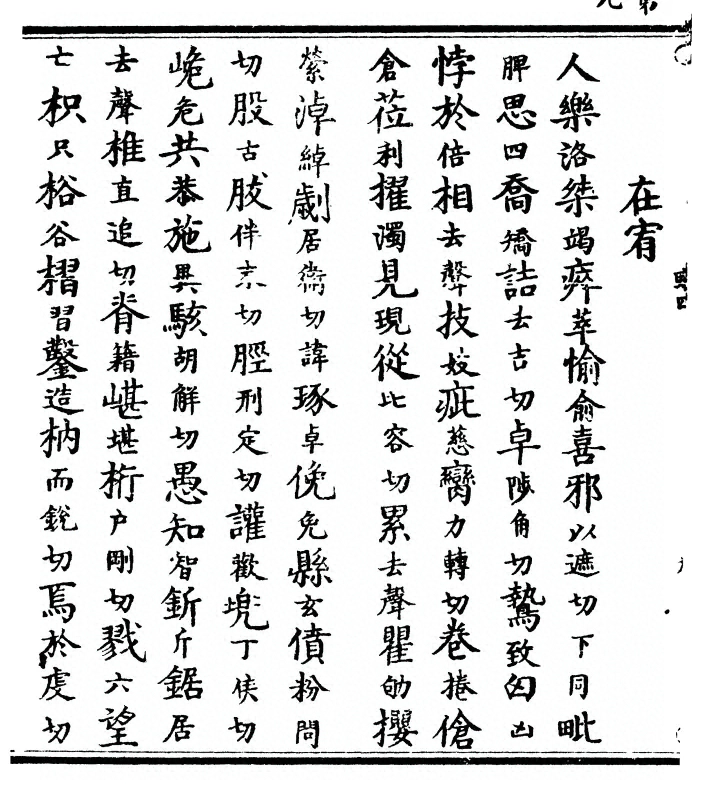 在宥
人樂洛桀竭瘁萃愉俞喜邪以遮切下同毗
脾思四喬矯詰去吉切卓陟角切鷙致匈凶
悖於倍相去聲技妓疵慈臠力轉切卷捲傖
倉蒞利擢濁見現從比容切累去聲瞿劬攖
縈淖綽劌居衛切諱琢卓俛免縣玄僨粉問
切股古胈伴末切脛刑定切讙歡兠丁侠切
嵬危共恭施異駭胡解切愚知智釿斤鋸居
去聲椎直追切脊籍嵁堪桁户剛切戮六望
亡枳只桰谷槢習鑿造枘而銳切焉於虔切